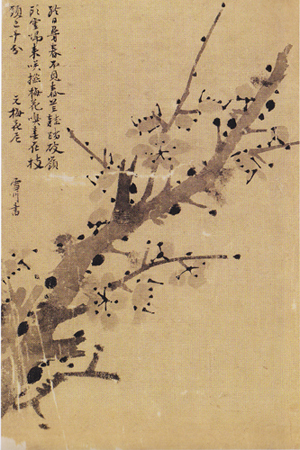 終日尋春不見春芒鞋踏破嶺
頭雲歸來笑撚梅花嗅春在枝
頭已十分
元梅花尼